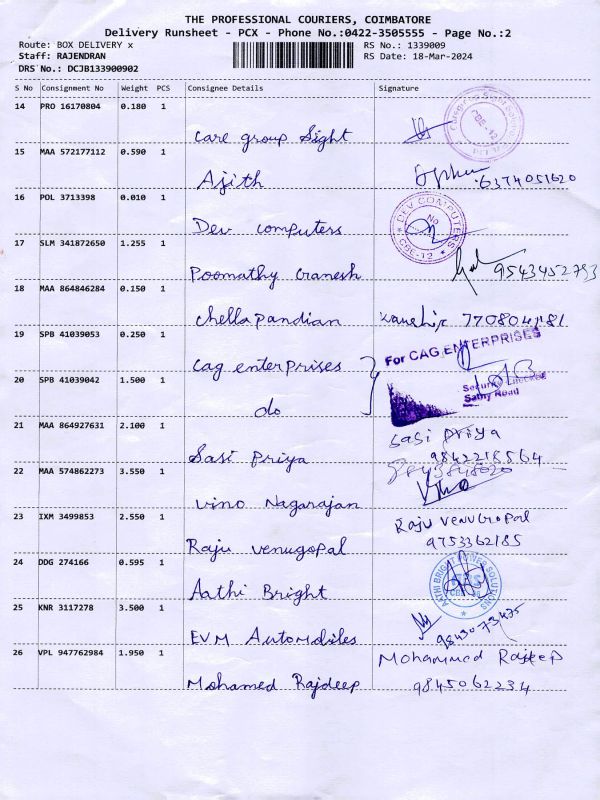 THE PROFESSIONAL COURIERS, COIMBATORE
Delivery Runsheet - PCX - Phone No.:0422-3505555 - Page No.:2
Route: BOX DELIVERY x RS No.: 1339009
Staff: RAJENDRAN RS Date: 18-Mar-2024
DRS No.: DCJB133900902
S No Consignment No Weight PCS Consignee Details Signature
14 PRO 16170804 0.180 1
Care group Sight
15 MAA 572177112 0.590 1
Ajith 6374051620
16 POL 3713398 0.010 1
DEV COMPUTERS
No
CBE-12
Dev computers
17 SLM 341872650 1.255 1
Poomathy Ganesh 9543452793
18 MAA 864846284 0.150 1
Chellapandian
19 SPB 41039053 0.250 1
For CAG ENTERPRISES
Cag enterprises
20 SPB 41039042 1.500 1
Sathy Road
do
21 MAA 864927631 2.100 1
Sasi Priya
Sasi Priya 9842218564
22 MAA 574862273 3.550 1
Vino Nagarajan
23 IXM 3499853 2.550 1
Raju Venugopal
Raju venugopal 9753362185
24 DDG 274166 0.595 1
AATHI BRIGHT POWER SOLUTIONS
Aathi Bright
25 KNR 3117278 3.500 1
EVM Automobiles 9843073475
26 VPL 947762984 1.950 1
Mohammed Rajdeep
Mohamed Rajdeep 9845062234